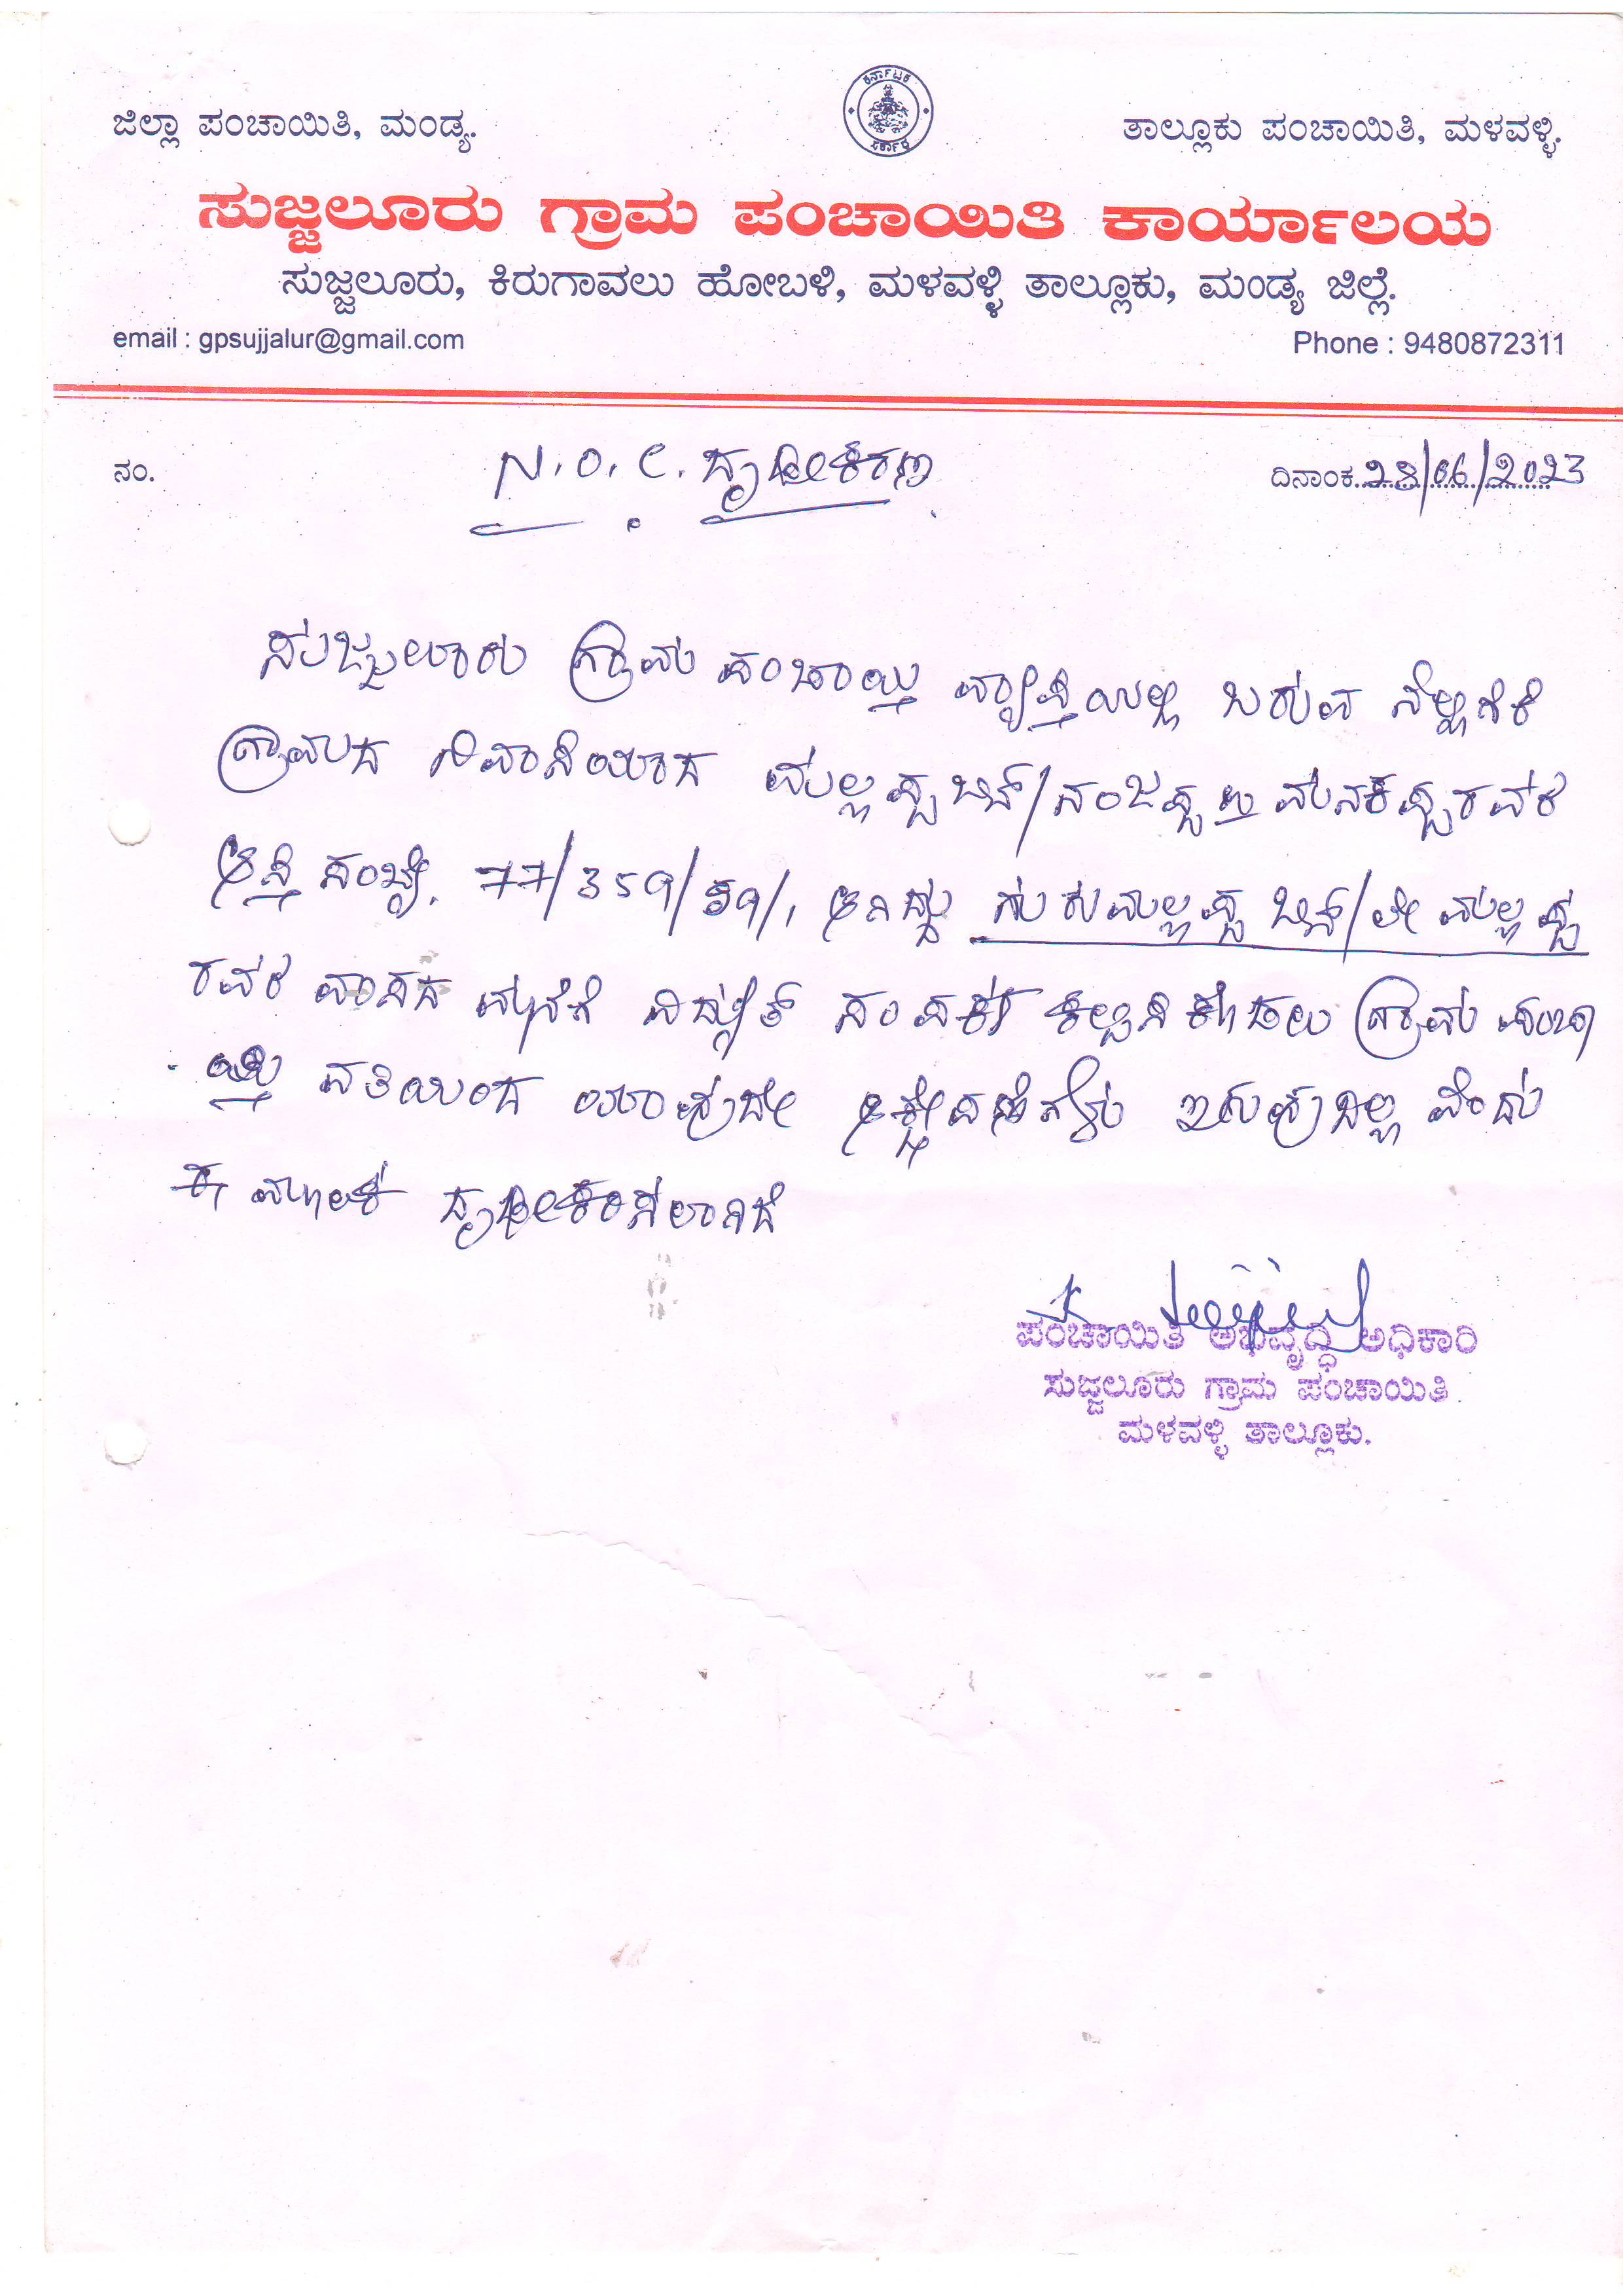 ಕರ್ನಾಟಕ ಸರ್ಕಾರ
ಜಿಲ್ಲಾ ಪಂಚಾಯಿತಿ, ಮಂಡ್ಯ.
ತಾಲ್ಲೂಕು ಪಂಚಾಯಿತಿ, ಮಳವಳ್ಳಿ.
ಸುಜ್ಜಲೂರು ಗ್ರಾಮ ಪಂಚಾಯಿತಿ ಕಾರ್ಯಾಲಯ
ಸುಜ್ಜಲೂರು, ಕಿರುಗಾವಲು ಹೋಬಳಿ, ಮಳವಳ್ಳಿ ತಾಲ್ಲೂಕು, ಮಂಡ್ಯ ಜಿಲ್ಲೆ.
email : gpsujjalur@gmail.com
Phone : 9480872311
ನಂ.
N.O.C. ದೃಢೀಕರಣ
ದಿನಾಂಕ 28/06/2023
ಸುಜ್ಜಲೂರು ಗ್ರಾಮ ಪಂಚಾಯ್ತಿ ವ್ಯಾಪ್ತಿಯಲ್ಲಿ ಬರುವ
ಗ್ರಾಮದ ನಿವಾಸಿಯಾದ ಮಲ್ಲಪ್ಪ ಬಿನ್/ನಂಜಪ್ಪ
ಆಸ್ತಿ ಸಂಖ್ಯೆ. 77/359/ ಆಗಿದ್ದು ಗುರುಮಲ್ಲಪ್ಪ ಬಿನ್/ಲೇ ಮಲ್ಲಪ್ಪ
ರವರ ವಾಸದ ಮನೆಗೆ ವಿದ್ಯುತ್ ಸಂಪರ್ಕ ಕಲ್ಪಿಸಿಕೊಡಲು ಗ್ರಾಮ ಪಂಚಾ
ಯ್ತಿ ವತಿಯಿಂದ ಯಾವುದೇ ಆಕ್ಷೇಪಣೆಗಳು ಇರುವುದಿಲ್ಲ ವೆಂದು
ಈ ಮೂಲಕ ದೃಢೀಕರಿಸಲಾಗಿದೆ
ಪಂಚಾಯಿತಿ ಅಭಿವೃದ್ಧಿ ಅಧಿಕಾರಿ
ಸುಜ್ಜಲೂರು ಗ್ರಾಮ ಪಂಚಾಯಿತಿ.
ಮಳವಳ್ಳಿ ತಾಲ್ಲೂಕು.